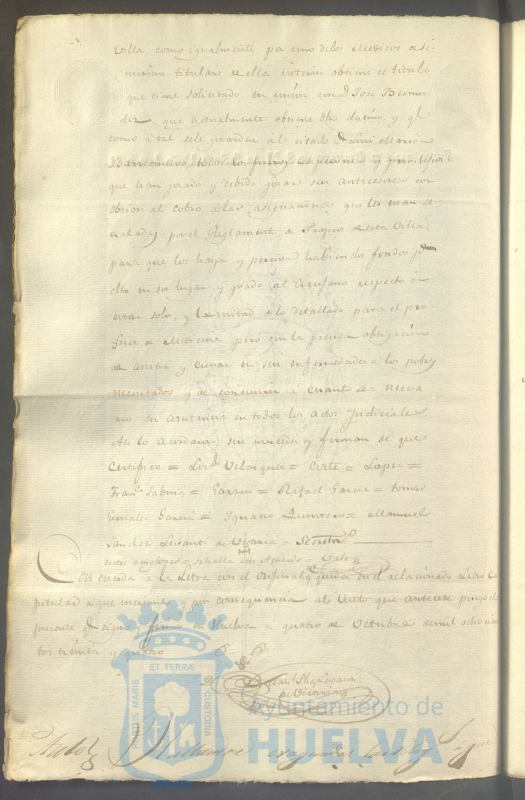 villa, como igualmente, por uno de los Medicos asi
mismo titular de ella interin obtiene el titulo
que tiene solicitado en union con Dn. Jose
que actualmente obtiene dho destino, y qe
como a tal sele guarden al citado Dn. Luis Maria
todos los
que han gozado y debido gozar sus antecesores con
obcion al cobro delas asignaciones que les estan se
ñaladas por el Reglamento de Propios de esta Villa
para que los haya y perciva habiendo fondos pa
ello en su lugar y grado, al Cirujano respecto á
estar solo, y la mitad de lo detallado para el pro
fesor de Medicina pero con la precisa obligacion
de asistir y curar en sus enfermedades a los pobres
necesitados, y de concurrir á cuanto sea necesa
rio su asistencia en todos los Actos Judiciales
Asi lo Acordaron sus mercedes y firman de que
Certifico = Velazquez = = Lopez =
Franco. = Garzon = Rafael Garcia = Tomas
Garcia = Ignacio Quintero = Manuel
Sanchez Lisant de = Secretoo
Vale
Concuerda a la Letra con el original que queda en el relacionado Libro Ca
pitular a que me remito y por consequencia al Auto que antecede pongo el
presente qe signo y firmo en Huelva a quatro de Octubre de mil ochocien
tos treinta y quatro
Manl. Shez Lisant
de
Auto
PORTUS MARIS ET TERRÆ CUSTODIA
Ayuntamiento de
HUELVA